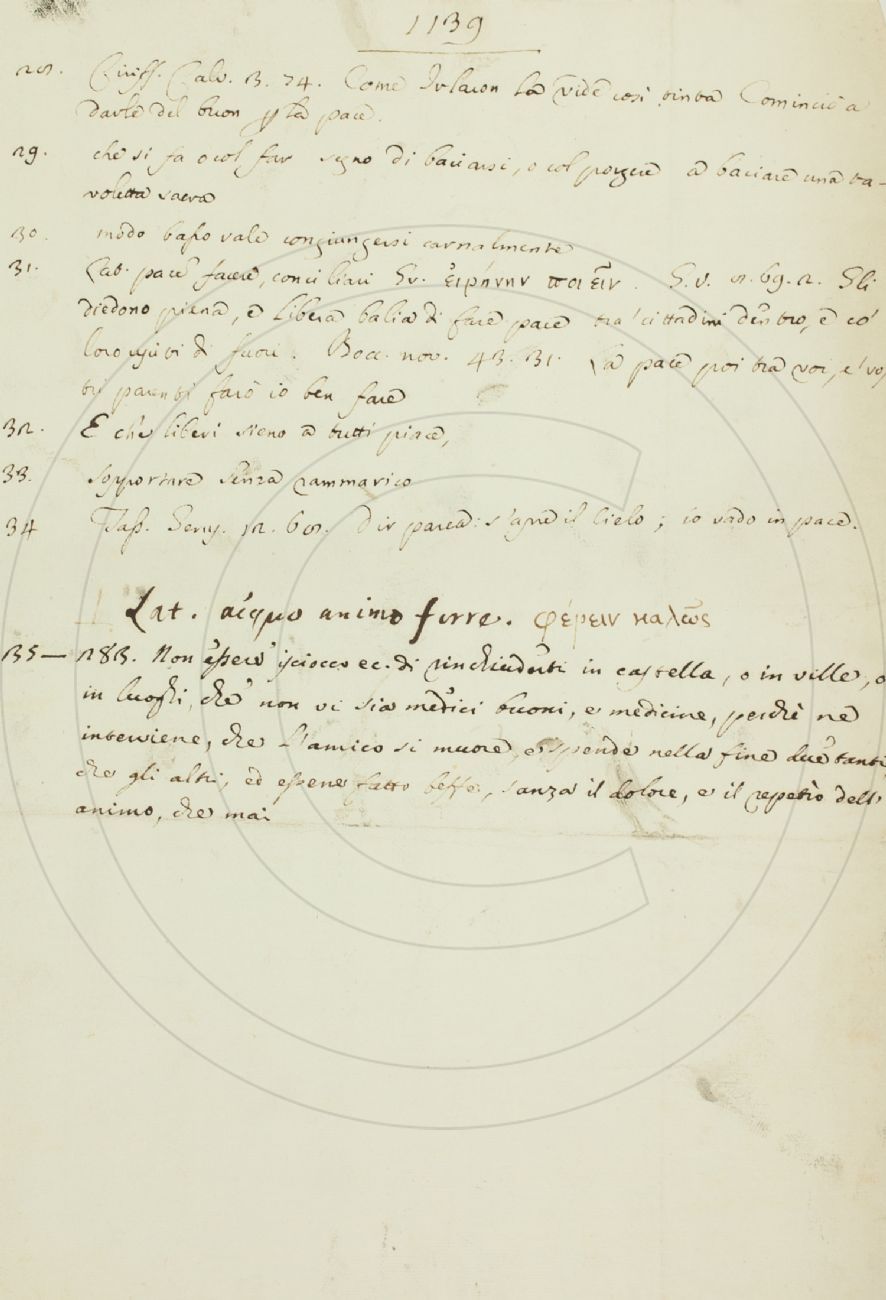 1139
28. Ciriff. Calv. 3. 74. Come Irlacon la vide così vinta Cominciò a
darle del buon p la pace.
29. che si fa o col far segno di baciarsi, o col porgere a baciare una ta-
voletta sacra
30. modo basso vale congiungersi carnalmente
31. Lat. pacē facere, conciliari Gr. ἐιρήνην ποιεῖν. G. V. 12. 69. 2. Gli
diedono piena, e libera balìa di fare pace tra' cittadini dentro, e co'
loro usciti di fuori. Bocc. nov. 43. 31. La pace poi tra voi, e' vos
tri parenti farò io ben fare
32. E che liberi sieno a tutti piace,
33. sopportare senza rammarico
34 Tass. Geru. 12. 68. Dir parea: s'apre il Cielo; io vado in pace.
Lat. aequo animo ferre. φέρειν καλῶς
35— 283. Non essere sciocco ec. di rinchiuderti in castella, o in ville, o
in luoghi, che non vi sia medici buoni, e medicine, perchè ne
interviene, che l'amico si muore, e spende nella fine due tanti
che gli altri, ed essene fatto beffe, sanza il dolore, e il repetio dell'
animo, che mai